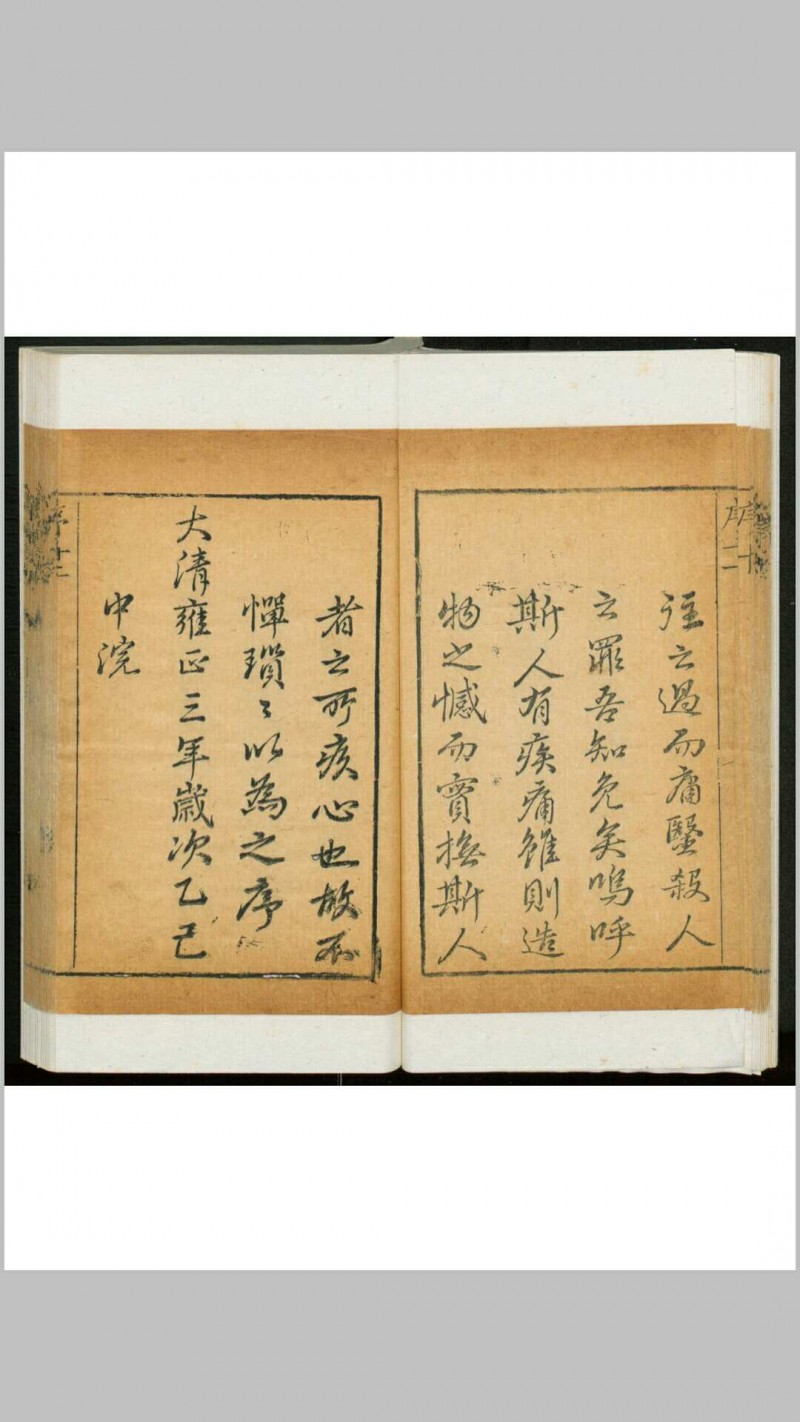 序 十二
注之過而庸醫殺人
之罪吾知免矣嗚呼
斯人有疾痛雖則造
物之憾而實撫斯人
者之所疚心也故不
憚瑣〻以為之序
大清雍正三年歲次乙巳
中浣
序 十二